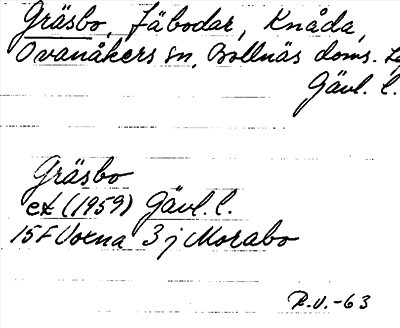 Gräsbo, fäbodar, Knåda,
Ovanåkers sn, Bollnäs doms.
Gävl. l.
Gräsbo
ek (1959) Gävl. l.
15F Voxna 3j Morabo
R.V.-63